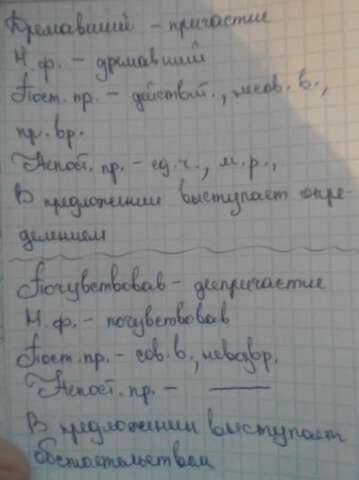 Дремавший - причастие
Н.ф. - дремавший
Пост. пр. - действ., несов. в.,
пр. вр.
Непост. пр. - ед. ч., м.р.,
В предложении выступает опре-
делением
Почувствовав - деепричастие
Н.ф. - почувствовав
Пост. пр. - сов. в., невозвр.
Непост. пр. - ——
В предложении выступает
обстоятельством